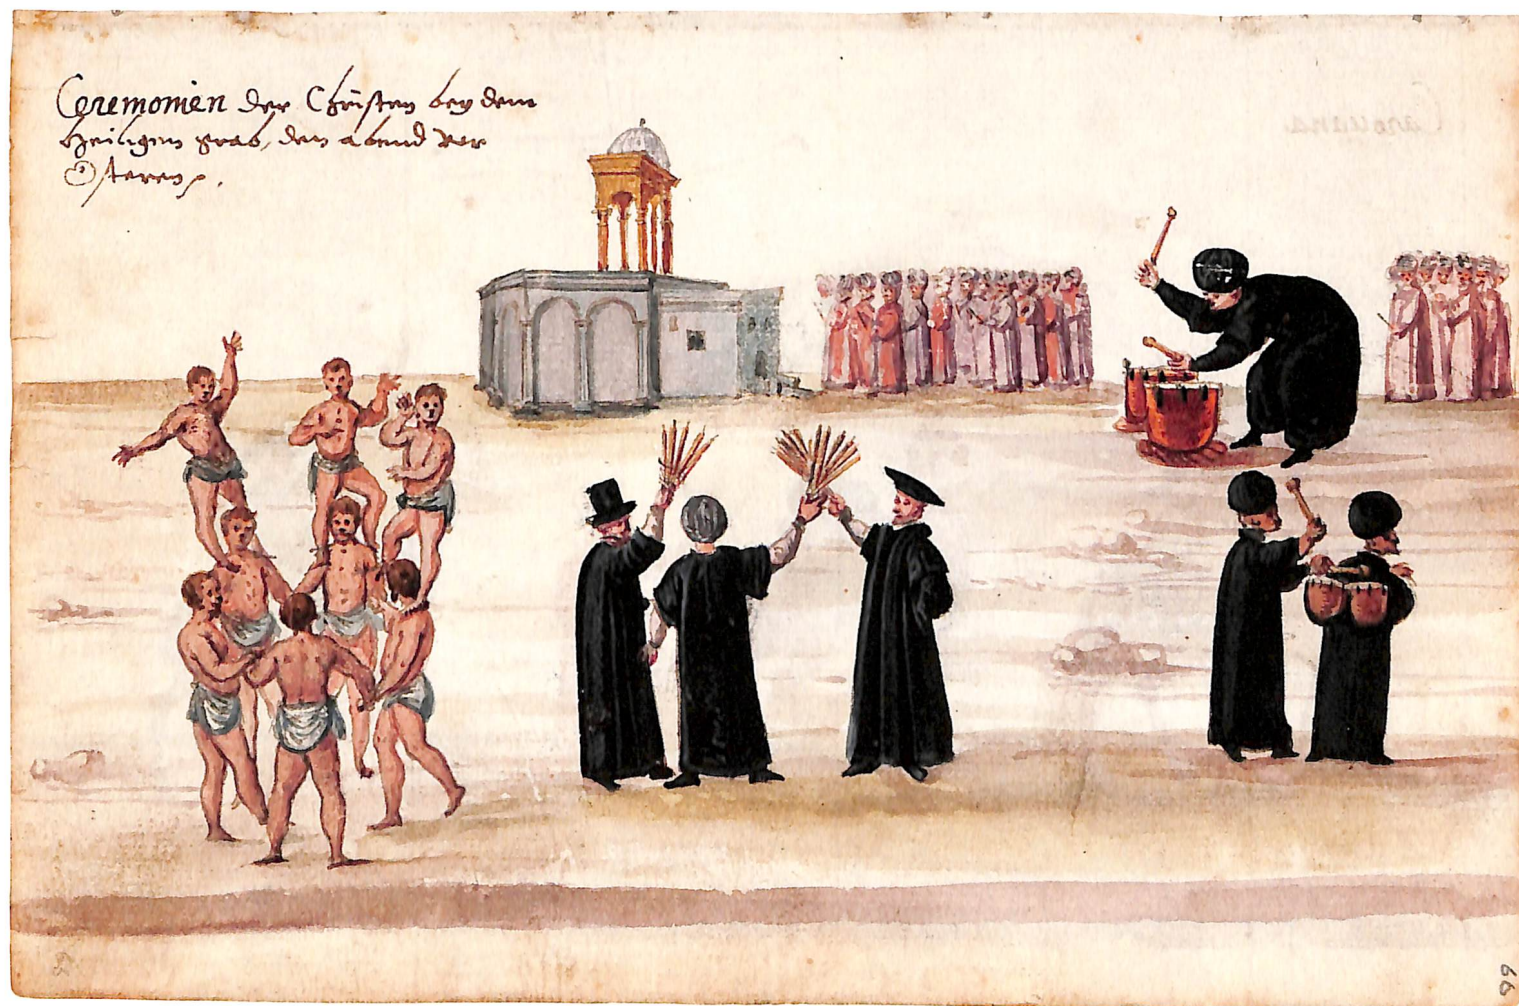 Ceremonien der Christen bey dem
Heiligen grab, den abend vor
Osteren.
66